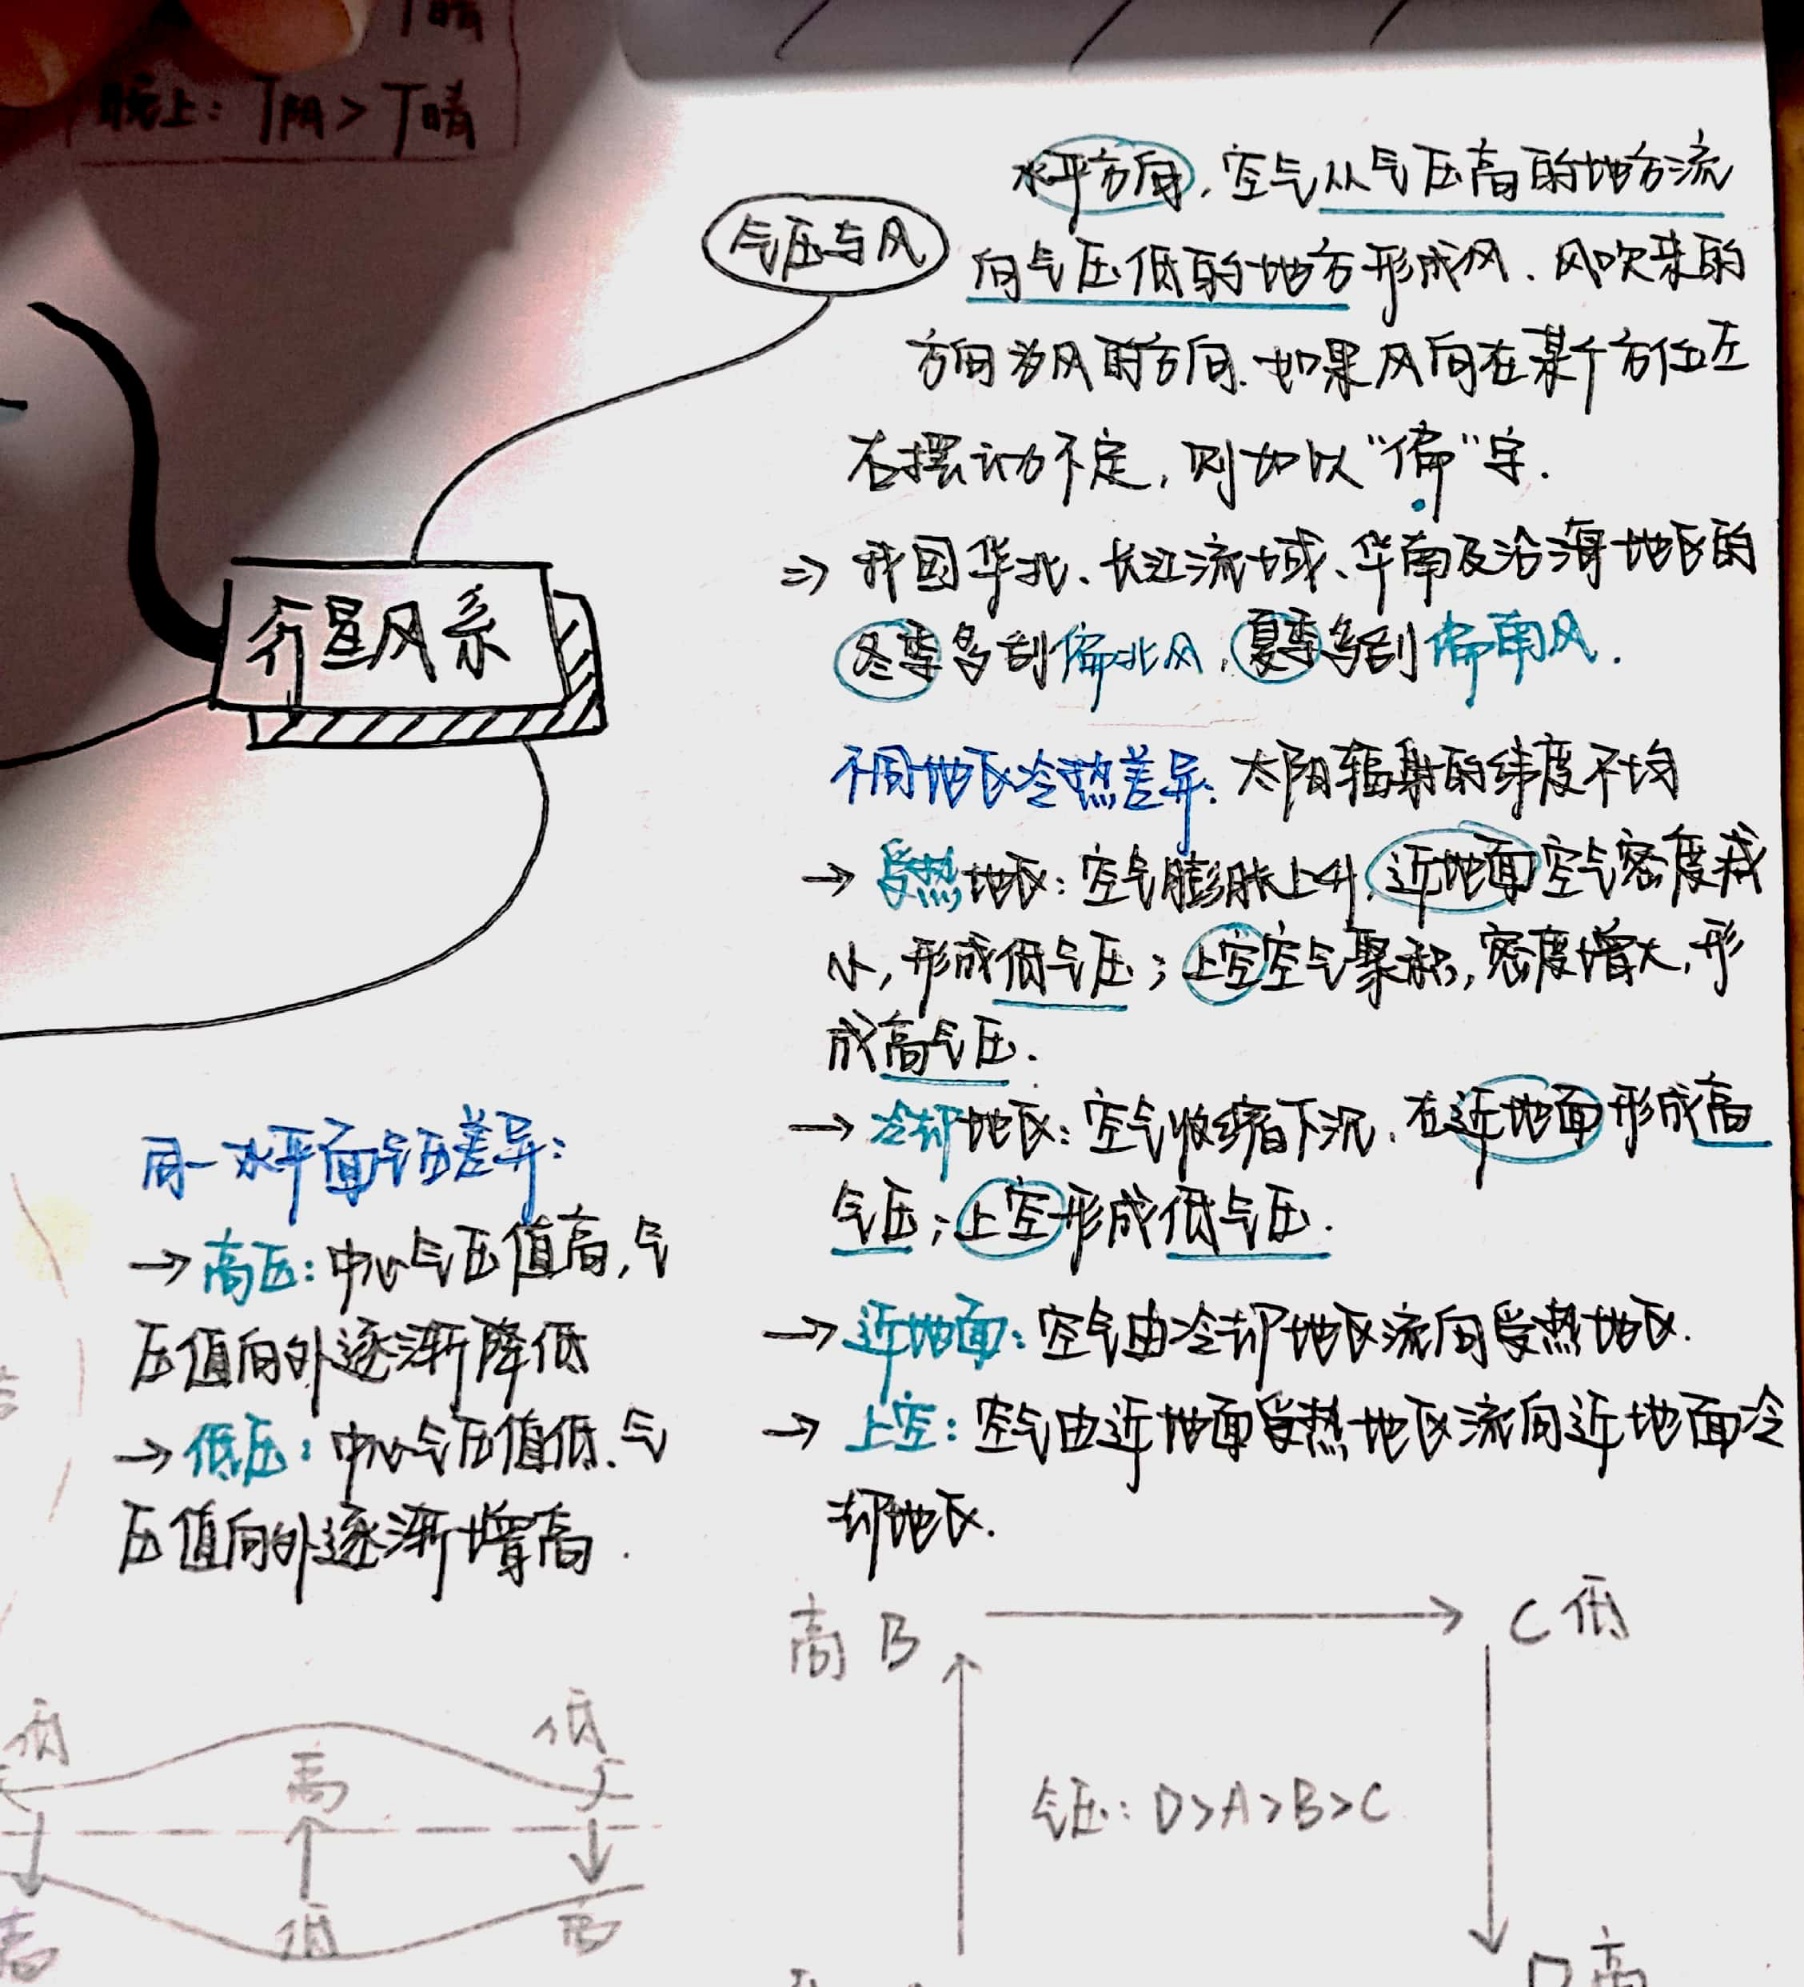 晚上：T阴＞T晴
气压与风
水平方向，空气从气压高的地方流
向气压低的地方形成风．风吹来的
方向为风的方向．如果风向在某个方位左
右摆动不定，则加以“偏”字．
⇒ 我国华北、长江流域、华南及沿海地区的
冬季多刮偏北风，夏季多刮偏南风．
行星风系
不同地区冷热差异：太阳辐射的纬度不均
→ 受热地区：空气膨胀上升，近地面空气密度减
小，形成低气压；上空空气聚积，密度增大，形
成高气压．
→ 冷却地区：空气收缩下沉．在近地面形成高
气压；上空形成低气压．
→ 近地面：空气由冷却地区流向受热地区．
→ 上空：空气由近地面受热地区流向近地面冷
却地区．
同一水平面气压差异：
→ 高压：中心气压值高，气
压值向外逐渐降低
→ 低压：中心气压值低．气
压值向外逐渐增高．
高 B → C 低
气压：D＞A＞B＞C
D 高
低 高 低
高 低 高